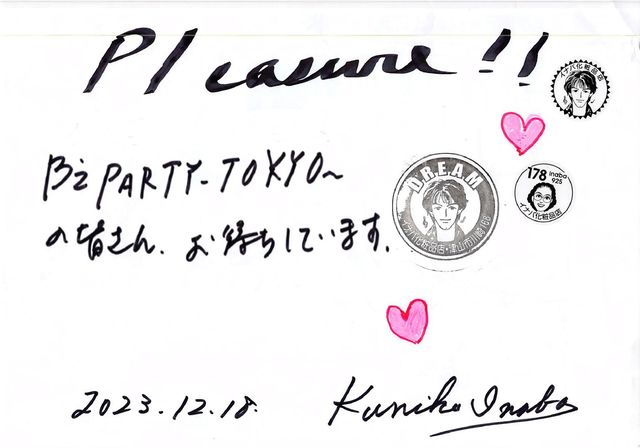 Pleasure!!
イナバ化粧品店
B'z PARTY-TOKYO~
の皆さん、お待ちしています。
D.R.E.A.M
イナバ化粧品店・津山市川崎168
178 inaba
925
イナバ化粧品店
2023.12.18.
Kuniko Inaba